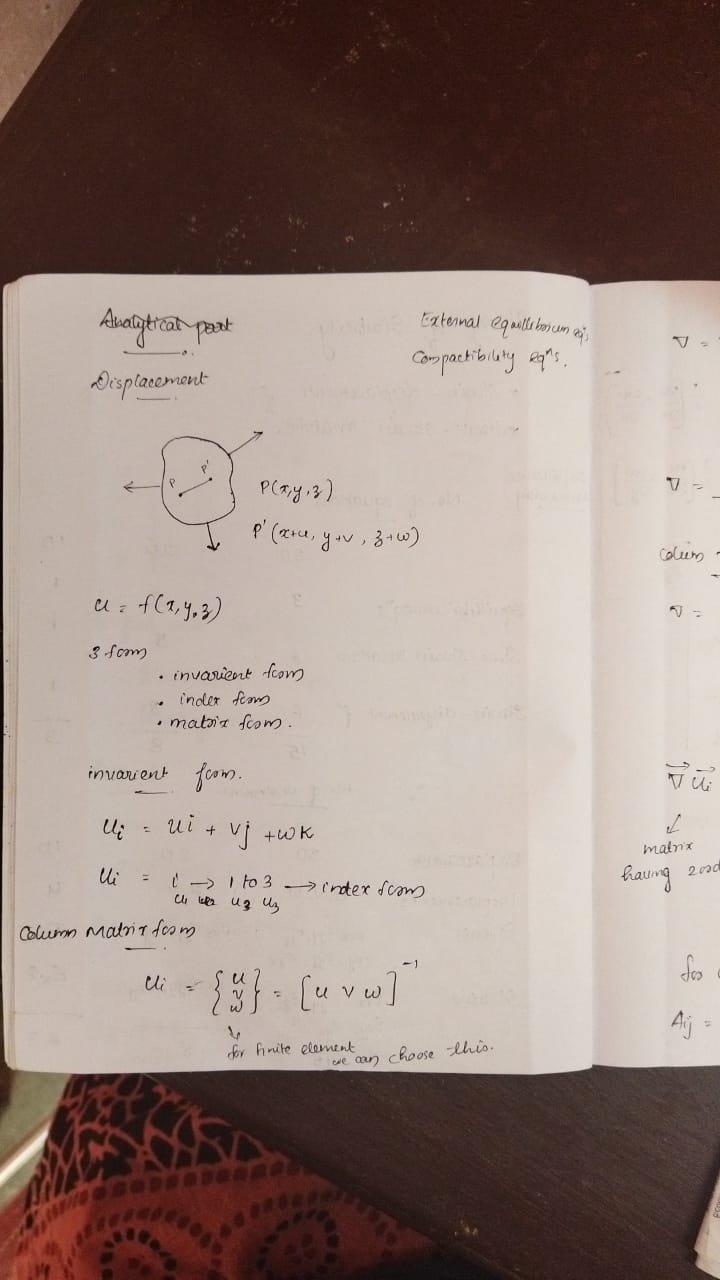 Analytical part
External equillibrium eqⁿs
Compactibility eqⁿs.
Displacement
P
P'
P(x,y,z)
P'(x+u, y+v, z+w)
u = f(x,y,z)
3 form
• invarient form
• index form
• matrix form.
invarient form.
Ui = ui + vj + wk
Ui = i → 1 to 3 → index form
u₃ u₃
Column Matrix form
Ui = {u v w} = [u v w]⁻¹
for finite element
we can choose this.
∇ =
∇ =
colum
∇ =
∇ Ui
matrix
having 2
for
Aij =